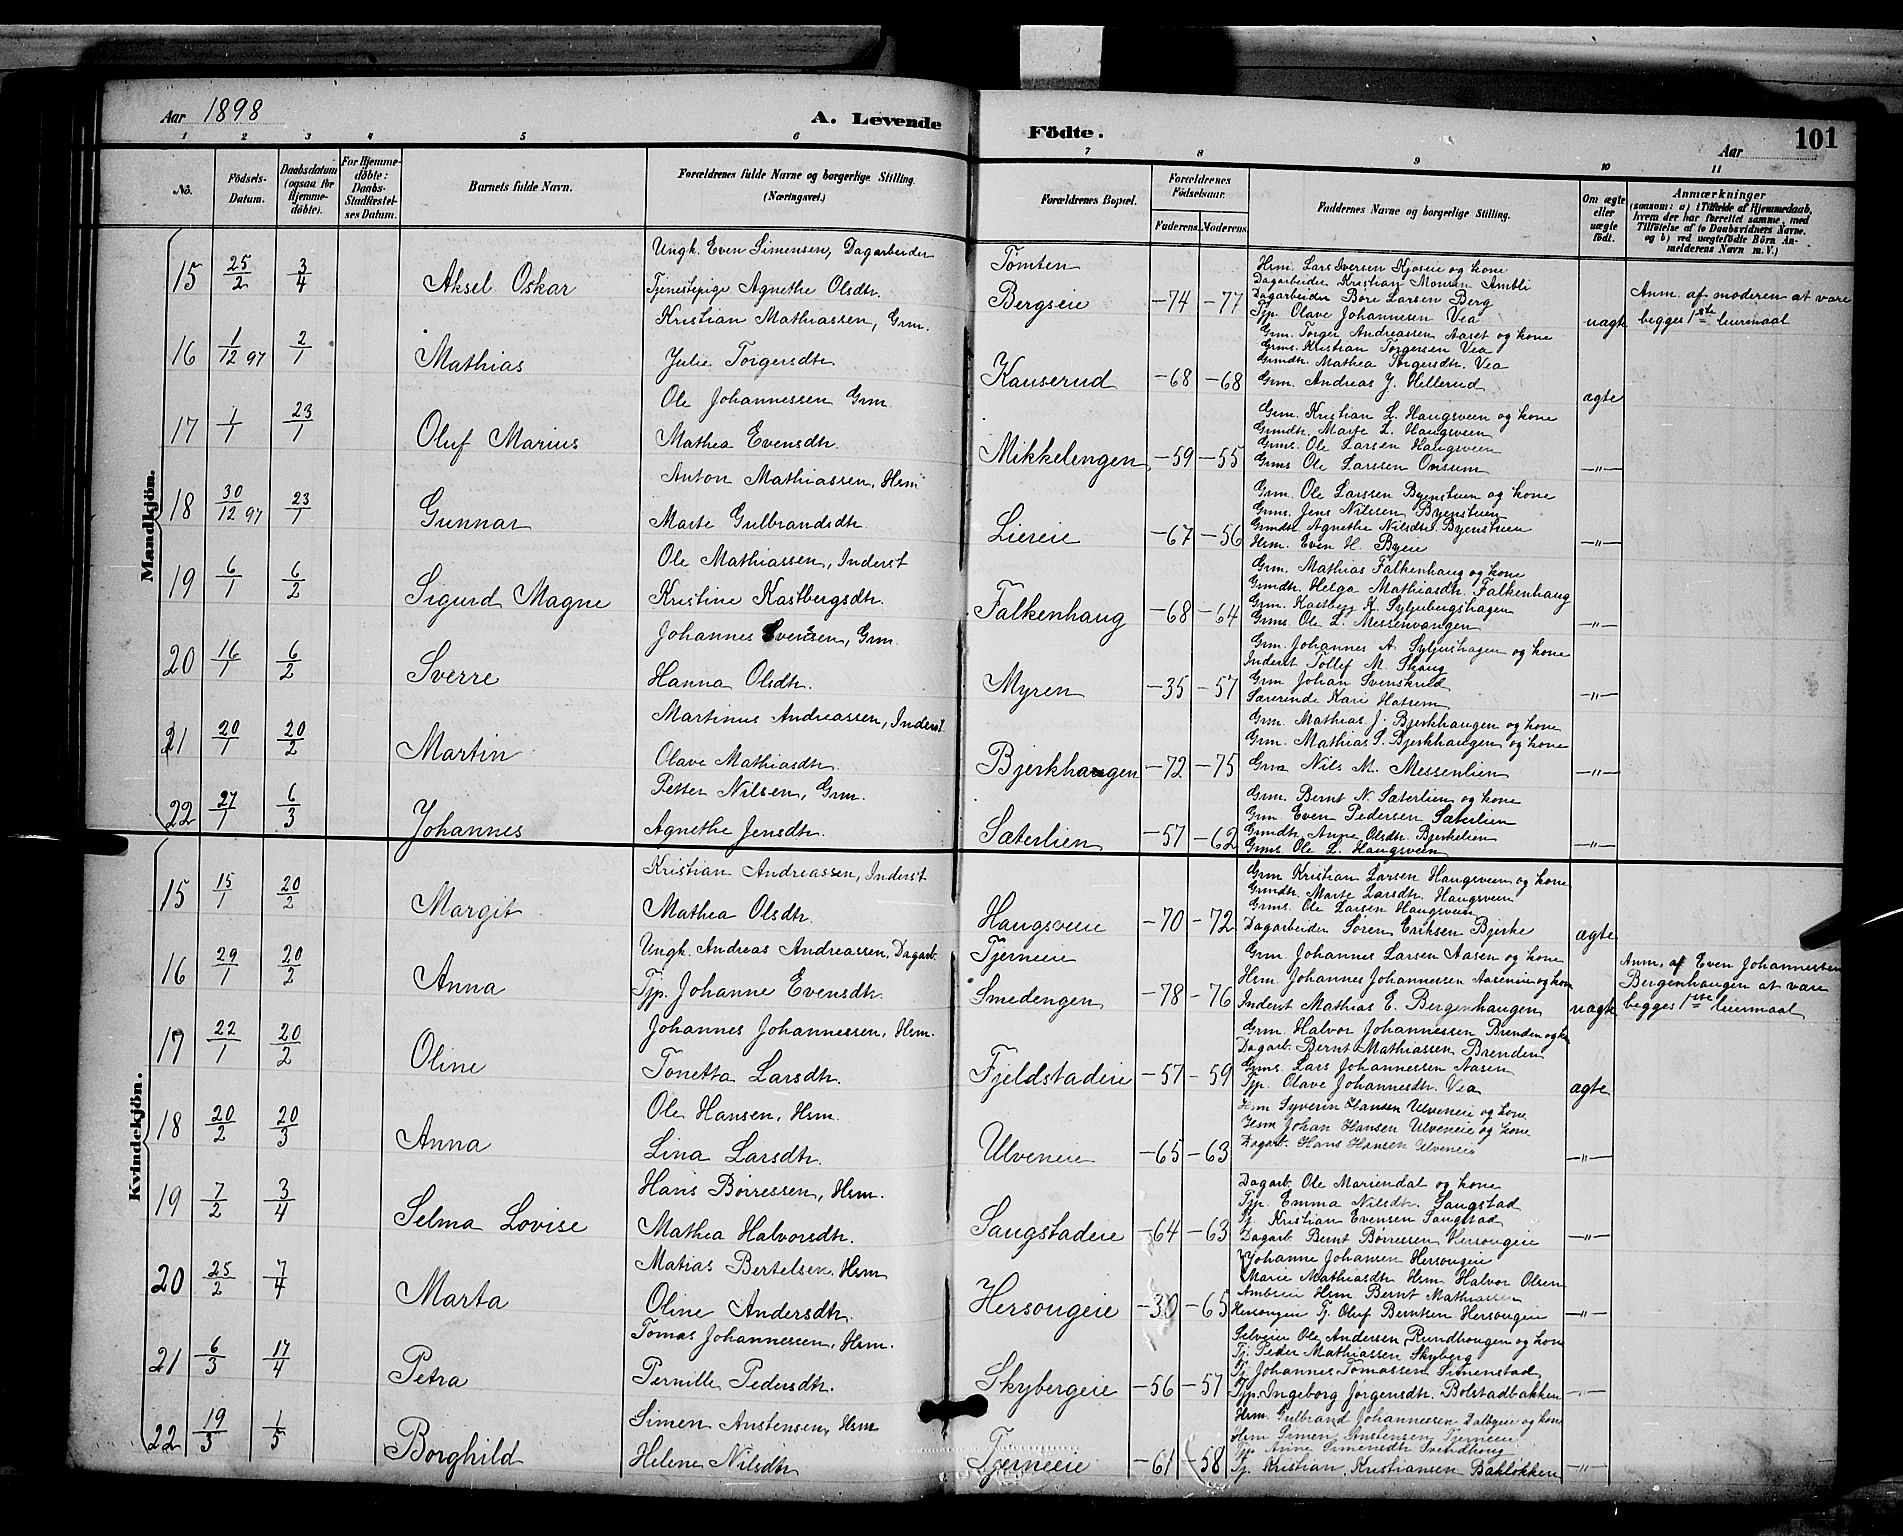 Aar 1898
A. Levende Födte.
Aar
101
1 2 3 4 5 6 7 8 9 10 11
No.
Födsels-Datum.
Daabsdatum (ogsaa for Hjemme-döbte).
For Hjemme-döbte: Daabs-Stadfæstel-ses Datum.
Barnets fulde Navn.
Forældrenes fulde Navne og borgerlige Stilling. (Næringsvei.)
Forældrenes Bopæl.
Forældrenes Födselsaar.
Faderens. Moderens.
Faddernes Navne og borgerlige Stilling.
Om ægte eller uægte født.
Anmærkninger
(saasom: a) i Tilfælde af Hjemmedaab, hvem der har forrettet samme, med Tilföielse af to Daabsvidners Navne. og b) ved uægtefödte Börn An-melderens Navn m. V.)
Mandkjön.
15 25/2 3/4 Aksel Oskar
Ungk. Even Simensen, Dagarbeider
Tjenestepige Agnethe Olsdtr.
Tomten
Bergseie -74 -77
Hsm. Lars Iversen Kjoseie og kone
Dagarbeider Kristian Monsen Ambli
Dagarbeider Bore Larsen Berg
Tjp. Olave Johannesen Vea
uægte
Anm. af moderen at vare
begges 1ste leiermaal
16 1/12 97 2/1 Mathias
Kristian Mathiassen, Grm.
Julie Torgersdtr.
Kauserud -68 -68
Grm. Torger Andreassen Aaset og kone
Grms. Kristian Torgersen Vea
Grmdtr. Mathea Torgersdtr. Vea
Grm. Andreas J. Hellerud
ægte
17 1/1 23/1 Oluf Marius
Ole Johannessen Grm.
Mathea Evensdtr.
Mikkelengen -59 -55
Grm. Kristian L. Haugsveen og kone
Grmdtr. Marte L. Haugsveen
Grms. Ole Larsen Haugsveen
Grms. Ole Larssen Onsum
-"-
18 30/12 97 23/1 Gunnar
Anton Mathiassen, Hsm
Marte Gulbrandsdtr.
Liereie -67 -56
Grm. Ole Larssen Byenstuen og kone
Grms. Jens Nilssen Byenstuen
Grmdtr. Agnethe Nilsdtr. Byenstuen
Hsm. Even H. Byeie
-"-
19 6/1 6/2 Sigurd Magne
Ole Mathiassen, Inderst
Kristine Kastbergsdtr.
Falkenhaug -68 -64
Grm. Mathias Falkenhaug og kone
Grmdtr. Helga Mathiasdtr. Falkenhaug
Grm. Kastberg K. Syljubergshagen
Grms. Ole L. Messenvangen
-"-
20 16/1 6/2 Sverre
Johannes Svensen, Grm.
Hanna Olsdtr.
Myren -35 -57
Grm. Johannes A. Syljushagen og kone
Inderst Tollef M. Skaug
Grm. Johan Svenskrud
Særerende Kari Hatrem
-"-
21 20/1 20/2 Martin
Martinus Andreassen, Inderst.
Olave Mathiasdtr.
Bjerkhaugen -72 -75
Grm. Mathias J. Bjerkhaugen og kone
Grm. Mathias P. Bjerkhaugen og kone
Grm Nils M. Messenlien
-"-
22 27/1 6/3 Johannes
Petter Nilsen, Grm.
Agnethe Jensdtr.
Sæterlien -57 -62
Grm. Bernt N. Sæterlien og kone
Grm. Even Pedersen Sæterlien
Grmdtr. Anne Olsdtr. Bjerkelien
Grms. Ole L. Haugsveen
-"-
Kvindekjön.
15 15/1 20/2 Margit
Kristian Andreassen, Inderst
Mathea Olsdtr.
Haugsveie -70 -72
Grm Kristian Larsen Haugsveen og kone
Grmdtr. Marte Larsdtr. Haugsveen
Grms. Ole Larsen Haugsveen
Dagarbeider Soren Eriksen Bjerke
ægte
16 29/1 20/2 Anna
Ungk. Andreas Andreassen, Dagarb.
Tjp. Johanne Evensdtr.
Tjerneie
Smedengen -78 -76
Grm. Johannes Larsen Aasen og kone
Hsm. Johannes Johannessen Aaseneie og kone
Inderst Mathias E. Bergenhaugen
uægte
Anm. af Even Johannessen
Bergenhaugen at vare
begges 1ste leiermaal
17 22/1 20/2 Oline
Johannes Johannessen, Hsm.
Tonetta Larsdtr.
Fjeldstadeie -57 -59
Grm. Halvor Johannessen Brenden og kone
Dagarb. Bernt Mathiassen Brenden
Grms. Lars Johannessen Aasen
Tjp. Olave Johannesdtr. Vea
ægte
18 20/2 20/3 Anna
Ole Hansen, Hsm.
Lina Larsdtr.
Ulveneie -65 -63
Hsm Syverin Hansen Ulveneie og kone
Hsm Johan Hansen Ulveneie og kone
Dagarb. Hans Hansen Ulveneie
-"-
19 7/2 3/4 Selma Lovise
Hans Børressen, Hsm.
Mathea Halvorsdtr.
Saugstadeie -64 -63
Dagarb. Ole Mariendal og kone
Tjp. Emma Nilsdtr. Saugstad
Tj. Kristian Evensen Saugstad
Dagarb Bernt Børresen Hersougeie
-"-
20 25/2 7/4 Marta
Matias Bertelsen, Hsm
Oline Andersdtr.
Hersougeie -30 -65
Johanne Johansen Hersougeie
Marie Mathiasdtr Hsm Halvor Olsen
Ambreie Hsm Bernt Mathiassen
Hersougeie Tj. Oluf Berntsen Hersougeie
-"-
21 6/3 17/4 Petra
Tomas Johannessen, Hsm.
Pernille Pedersdtr.
Skybergeie -56 -57
Selveier Ole Andersen Rundhougen og kone
Tj. Peder Mathiassen Skyberg
Tj. Johannes Tomassen Simenstad
Tjp. Ingeborg Jørgensdtr. Bolstadbakken
-"-
22 19/3 1/5 Borghild
Simen Anstensen, Hsm
Helene Nilsdtr
Tjerneie -61 -58
Hsm. Gulbrand Johannessen Dalbyeie og kone
Hsm Simen Anstensen Tjerneie
Tjp. Anne Simensdtr Svendhoug
Tj. Kristian Kristiansen Bakløkken
-"-